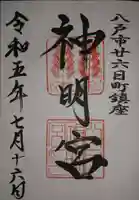 八戸市廿六日町鎮座
神明宮
令和五年七月十六日